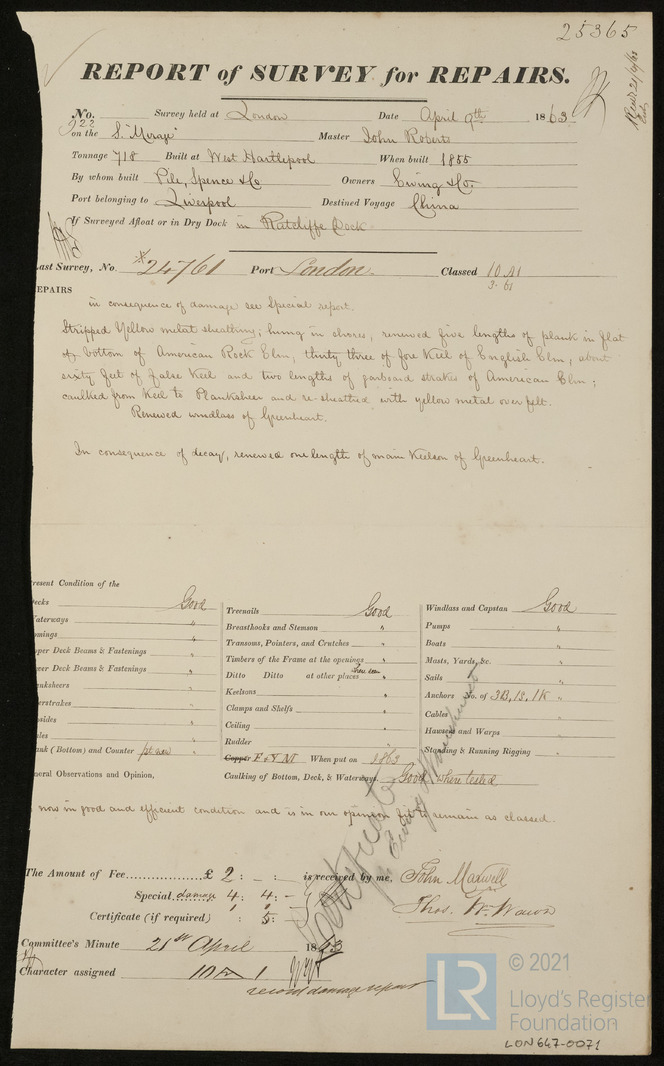 25365
REPORT of SURVEY for REPAIRS.
No. 922 Survey held at London Date April 9th 1863
on the S. "Mirage" Master John Roberts
Tonnage 718 Built at West Hartlepool When built 1855
By whom built Pile, Spence & Co Owners Ewing & Co.
Port belonging to Liverpool Destined Voyage China
If Surveyed Afloat or in Dry Dock in Ratcliffe Dock
Last Survey, No. *24761 Port London Classed 10 A1
3.61
EPAIRS
in consequence of damage see Special report.
Stripped Yellow metal sheathing; hung in shores, renewed five lengths of plank in flat
of bottom of American Rock Elm, thirty three of fore Keel of English Elm, about
sixty feet of false Keel and two lengths of garboard strakes of American Elm;
caulked from Keel to Planksheer and re-sheathed with yellow metal over felt.
Renewed windlass of Greenheart.
In consequence of decay, renewed one length of main Keelson of Greenheart.
resent Condition of the
ecks Good
aterways "
omings "
pper Deck Beams & Fastenings "
wer Deck Beams & Fastenings "
anksheers "
erstrakes "
psides "
ales "
ank (Bottom) and Counter pt new "
Treenails Good
Breasthooks and Stemson "
Transoms, Pointers, and Crutches "
Timbers of the Frame at the openings "
Ditto Ditto at other places where seen "
Keelsons "
Clamps and Shelfs "
Ceiling "
Rudder "
Copper F & Y M When put on 1863
Caulking of Bottom, Deck, & Waterways Good where tested
Windlass and Capstan Good
Pumps "
Boats "
Masts, Yards, &c. "
Sails "
Anchors No. of 3B, 1S, 1K "
Cables "
Hawsers and Warps "
Standing & Running Rigging "
neral Observations and Opinion,
now in good and efficient condition and is in our opinion fit to remain as classed.
The Amount of Fee £ 2 : - : - is received by me,
John Maxwell
Special damage 4 : 4 : -
Thos. W. Wawn
Certificate (if required) : 5 : -
Committee's Minute 21st April 1863
Character assigned 10 A 1
record damage repair
© 2021
LR
Lloyd's Register
Foundation
LON647-0071